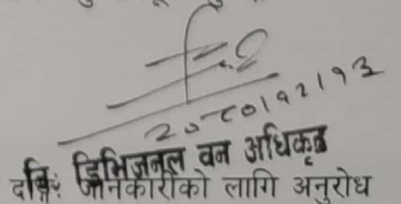 २०८०।१२।१३
नि. डिभिजनल वन अधिकृत
जानकारीको लागि अनुरोध